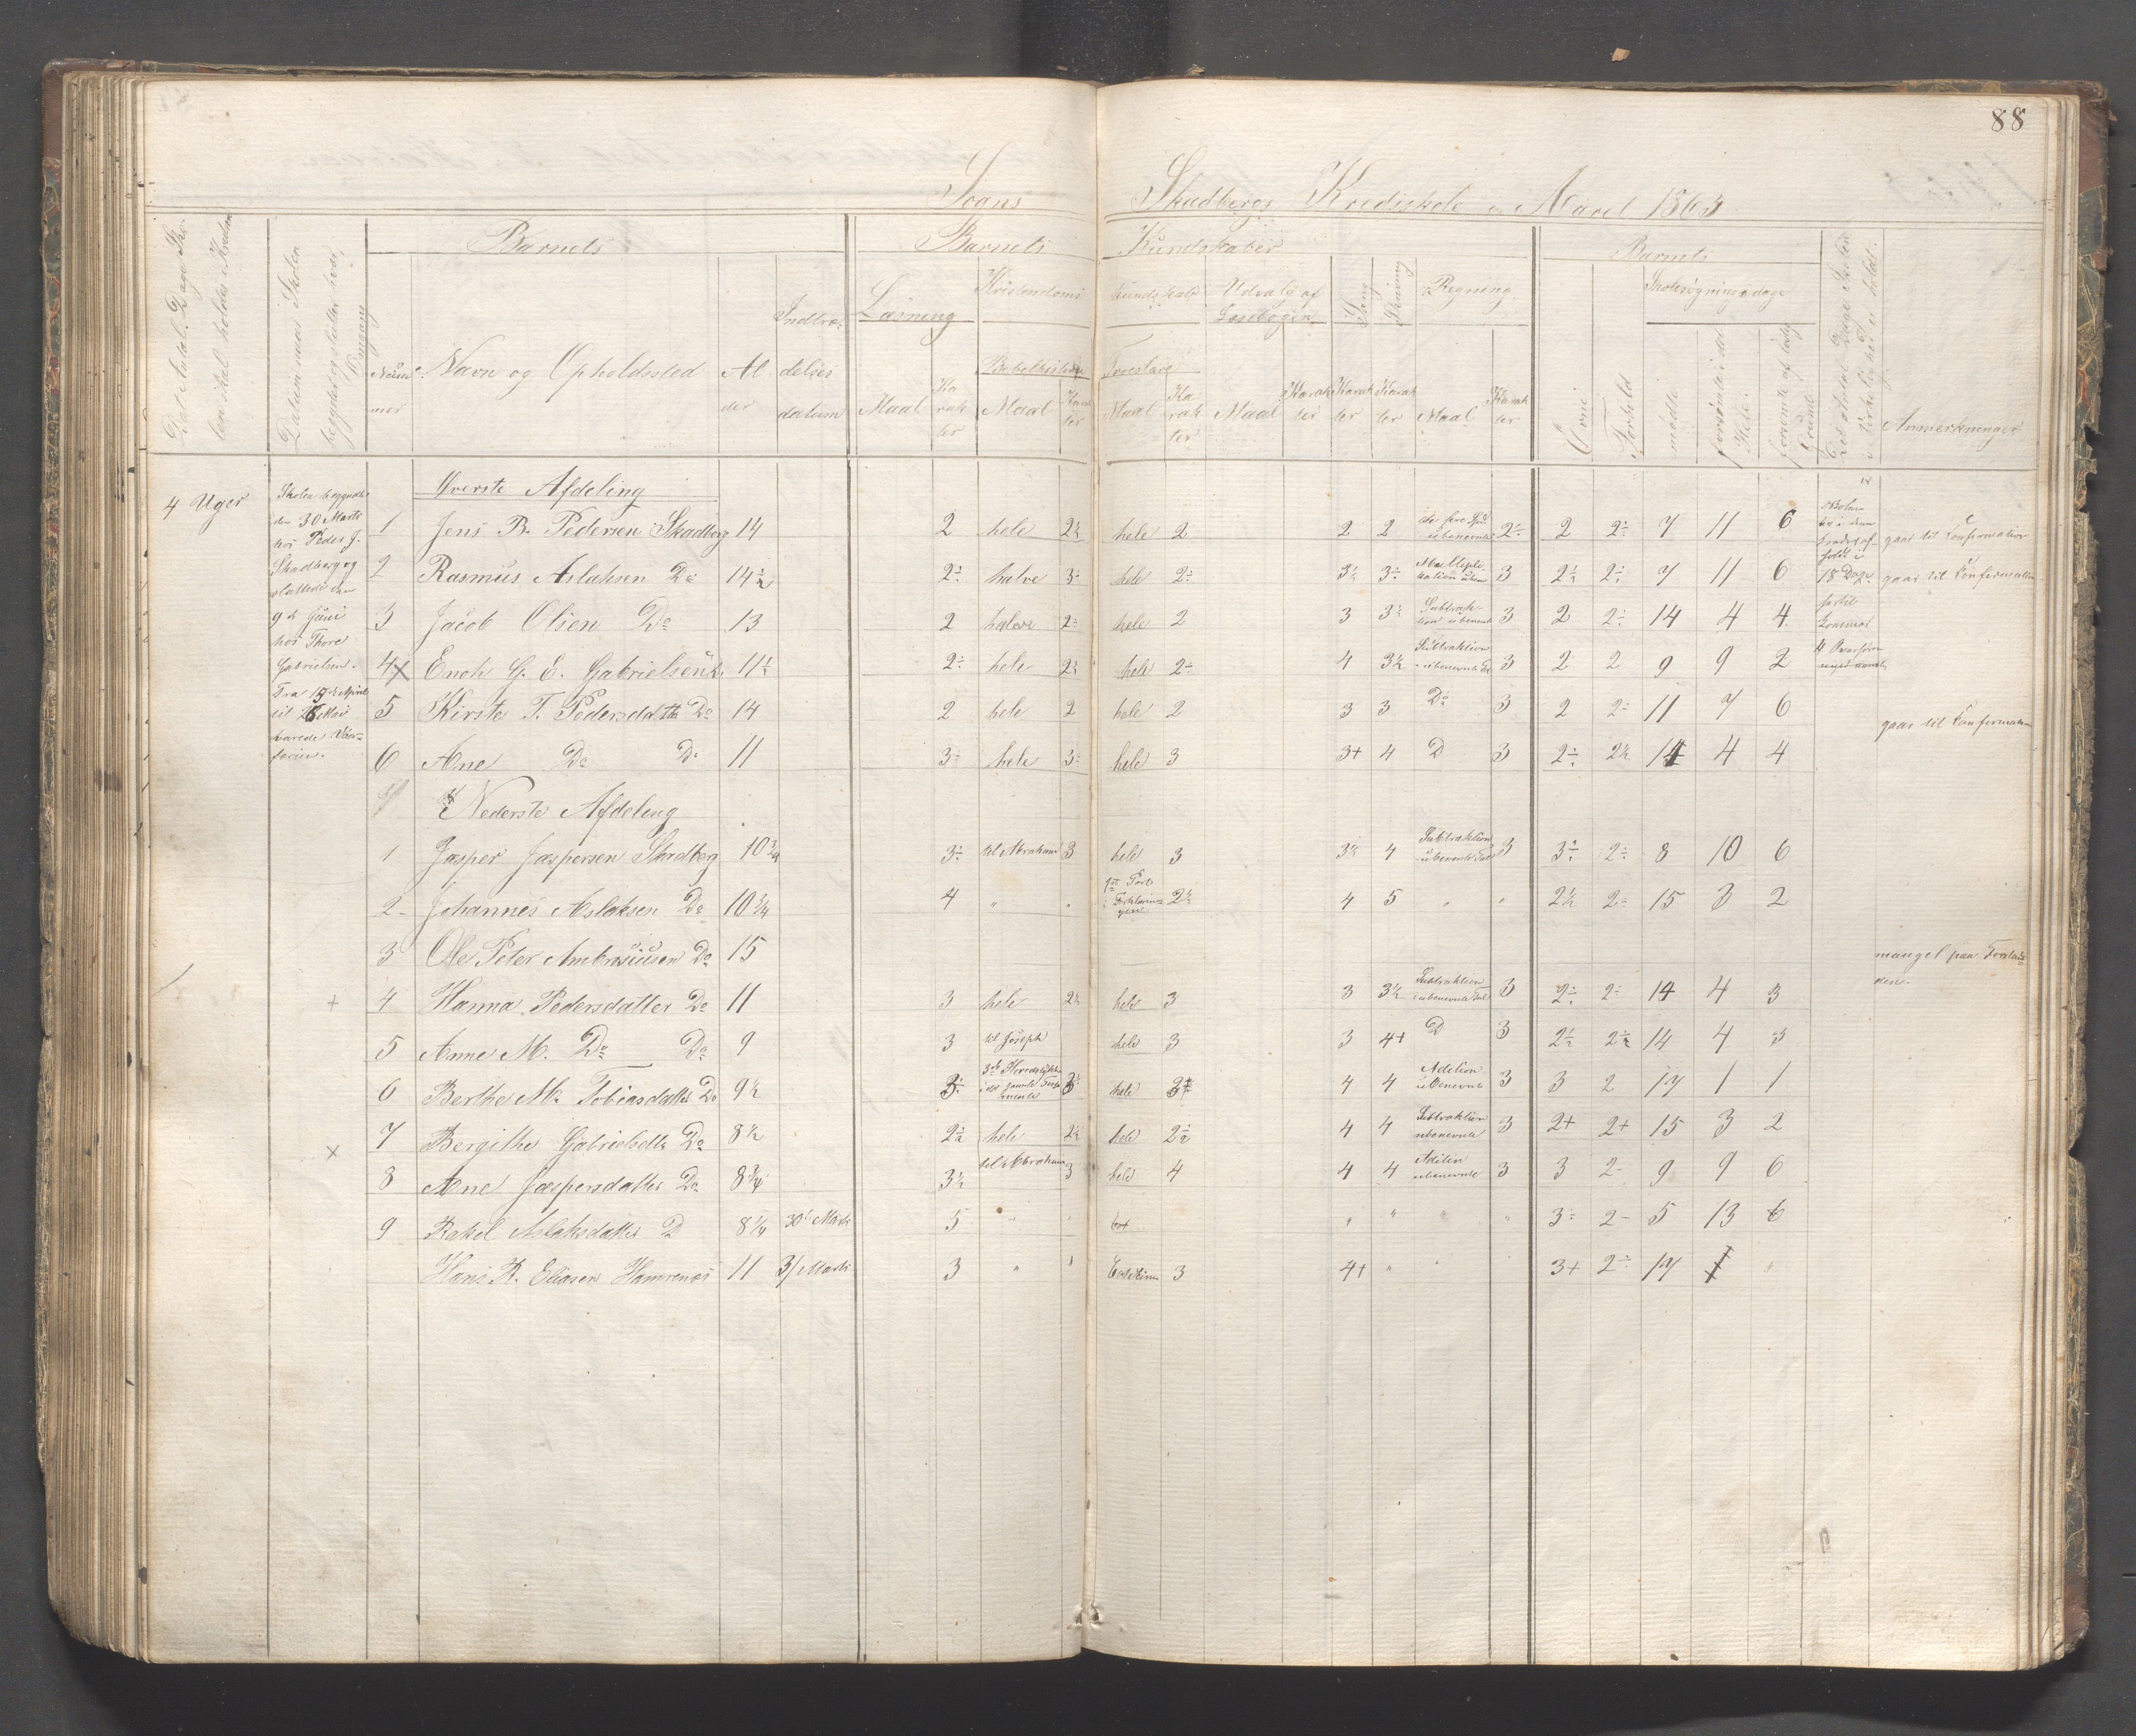 88
Soans Skadbergs Kredsskole i Aaret 1863
Det Antal Dage Sko-
len skal holdes i Kredsen
Datum naar Skolen
begyndes og slutter hver
Omgang
Barnets
Num-
mer
Navn og Opholdssted
Al
der
Indtræ-
delses
datum
Barnets Kundskaber
Læsning
Maal
Ka
rak
ter
Kristendoms kundskab
Bibelhistorie
Maal
Karak
ter
Troeslære
Maal
Ka
rak
ter
Udvalg af
Læsebogen
Maal
Karak
ter
Sang
Karak
ter
Skrivning
Karak
ter
Regning
Maal
Karak
ter
Barnets
Evne
Forhold
Skolesøgningsdage
mødte
forsømte i det
Hele
forsømte af lovlig
Grund
Det Antal Dage Skolen
i Virkeligheden er holdt.
Anmerkninger
4 Uger
Skolen begyndte
den 30 Marts
hos Peder J.
Skadberg og
sluttede den
9de Juni
hos Thore
Gabrielsen.
Fra 15de April
til 26 Mai
varede Vaar-
ferien.
Øverste Afdeling
1 Jens B. Pedersen Skadberg 14 2 hele 2½ hele 2 2 2 ubenevnte 2÷ 2 2÷ 7 11 6 gaar til Confirmation
2 Rasmus Aslaksen Do 14½ 2÷ halve 3÷ hele 2÷ 3½ 3÷ Multipli-
kation uben 3 2½ 2÷ 7 11 6 18 Dage gaar til Confirmation
3 Jacob Olsen Do 13 2 halve 2÷ hele 2 3 3½ Subtrak-
tion ubenevnte 3 2 2÷ 14 4 4
4 x Enok G. E. Gabrielsen Do 11½ 2÷ hele 2½ hele 2÷ 4 3½ Subtraktion
ubenevnte Tal 3 2 2 9 9 2
5 Kirste T. Pedersdatter Do 14 2 hele 2 hele 2 3 3 Do 3 2 2÷ 11 7 6 gaar til Confirmation
6 Ane Do Do 11 3÷ hele 3÷ hele 3 3+ 4 D 3 2÷ 2½ 14 4 4
Nederste Afdeling
1 Jæsper Jæspersen Skadberg 10¾ 3÷ til Abraham 3 hele 3 3½ 4 Subtraktion
ubenevnte Tal 3 3÷ 2÷ 8 10 6
2 Johannes Aslaksen Do 10¾ 4 " " 1ste Part
i Forklarin-
gen 2½ 4 5 " " 2½ 2÷ 15 3 2
3 Ole Peter Ambrosiusen Do 15 mangel paa Forstan-
den.
+ 4 Hanna Pedersdatter Do 11 3 hele 2½ hele 3 3 3½ Subtraktion
i ubenevnte Tal 3 2÷ 2÷ 14 4 3
5 Anne M. Do Do 9 3 til Joseph hele 3 3 4+ D 3 2½ 2½ 14 4 3
6 Berthe M. Tobiasdatter Do 9½ 3÷ hele 4 4 Adition
ubenevnte 3 3 2 17 1 1
x 7 Bergithe Gabrielsdtr Do 8½ 2½ hele 2½ hele 2½ 4 4 Subtraktion
ubenevnte 3 2+ 2+ 15 3 2
8 Ane Jæspersdatter Do 8¾ 3½ til Abraham 3 hele 4 4 4 Adition
ubenevnte 3 3 2- 9 9 6
9 Rakel Aslaksdatter D 8¼ 30te Marts 5 " " " " " " 3÷ 2- 5 13 6
Hans R. Eliasen Hamrenes 11 3/ Marts 3 " " 3 4+ " " 3+ 2÷ 17 1 "